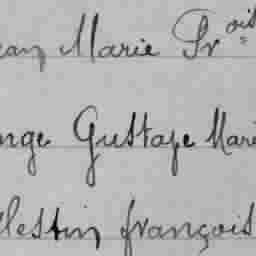 ean Marie Fr ois
orge Gustave Mari
élestin françois